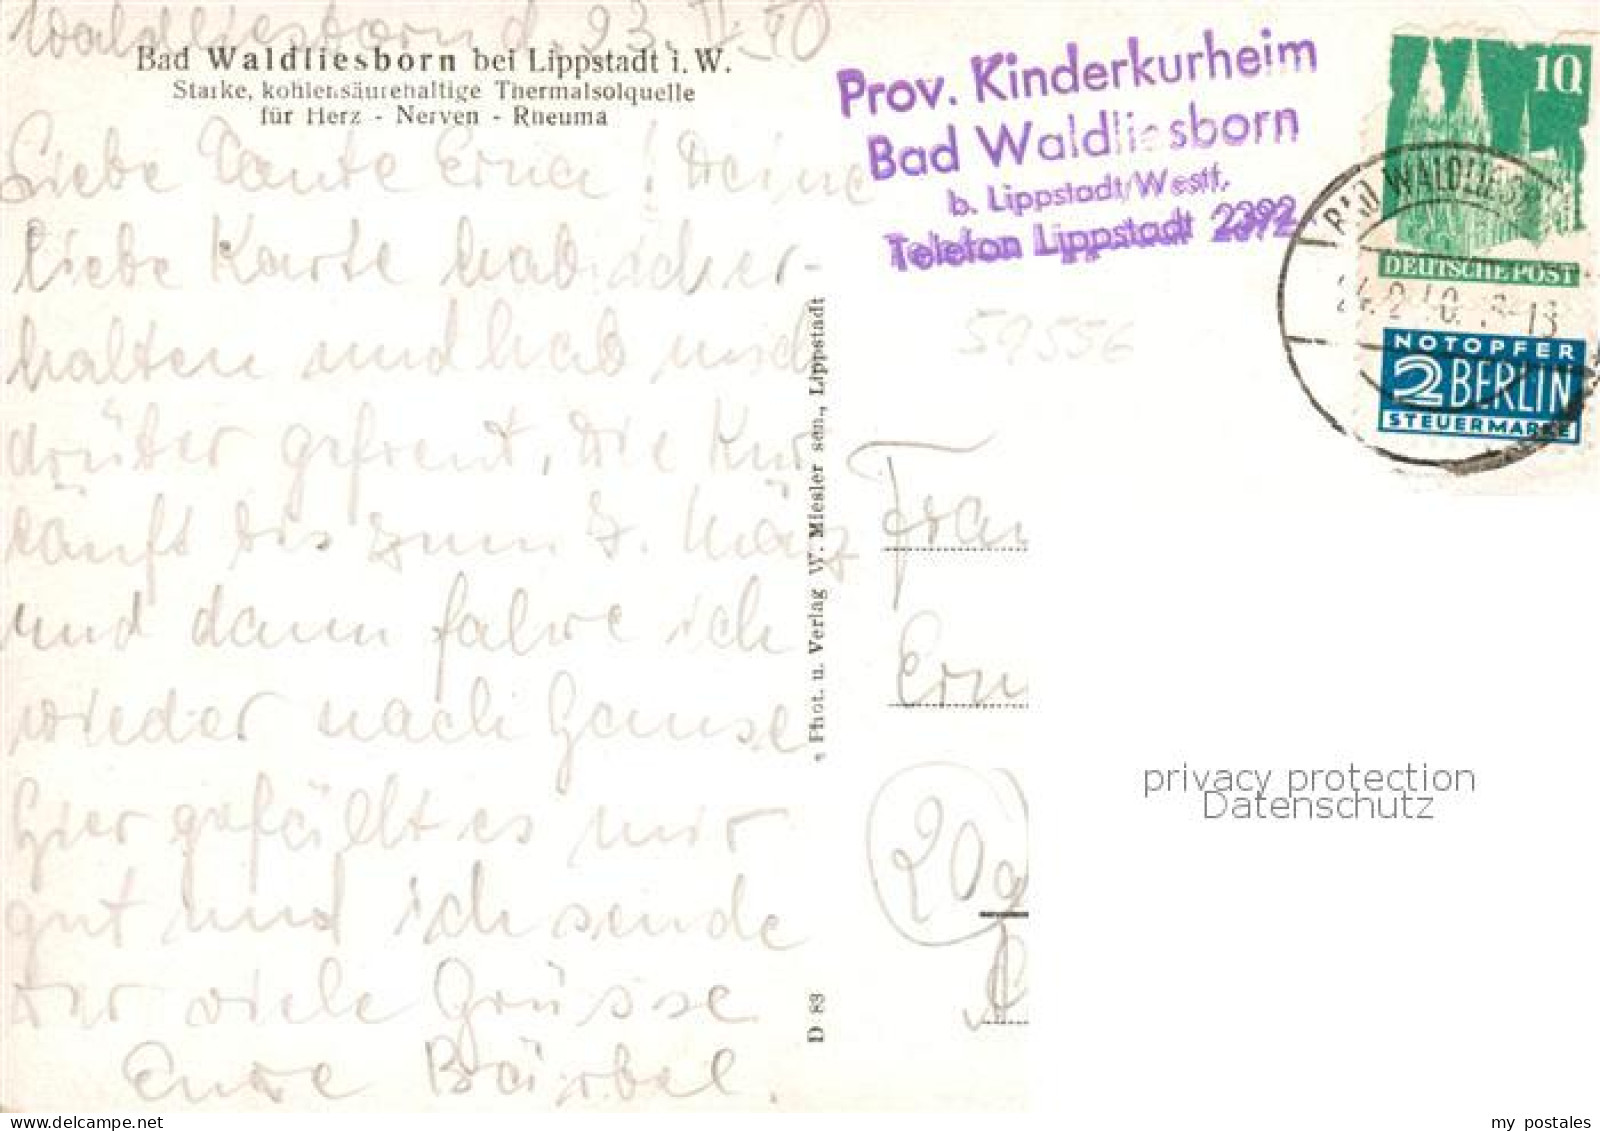 Waldliesborn d. 23. II. 50
Bad Waldliesborn bei Lippstadt i. W.
Starke, kohlensäurehaltige Thermalsolquelle
für Herz - Nerven - Rheuma
Liebe Tante Erna! Deine
liebe Karte hab ich er-
halten und hab mich
drüber gefreut, die Kur
läuft bis zum 7. März
und dann fahre ich
wieder nach Hause
Hier gefällt es mir
gut und ich sende
Dir viele Grüsse
Eure Bärbel.
Phot. u. Verlag W. Miesler sen., Lippstadt
D 83
Prov. Kinderkurheim
Bad Waldliesborn
b. Lippstadt/Westf.
Telefon Lippstadt 2392
59556
10
DEUTSCHE POST
BAD WALDLIESB
24.2.50
NOTOPFER
2 BERLIN
STEUERMARKE
Frau
Ern
20a
privacy protection
Datenschutz
my postales